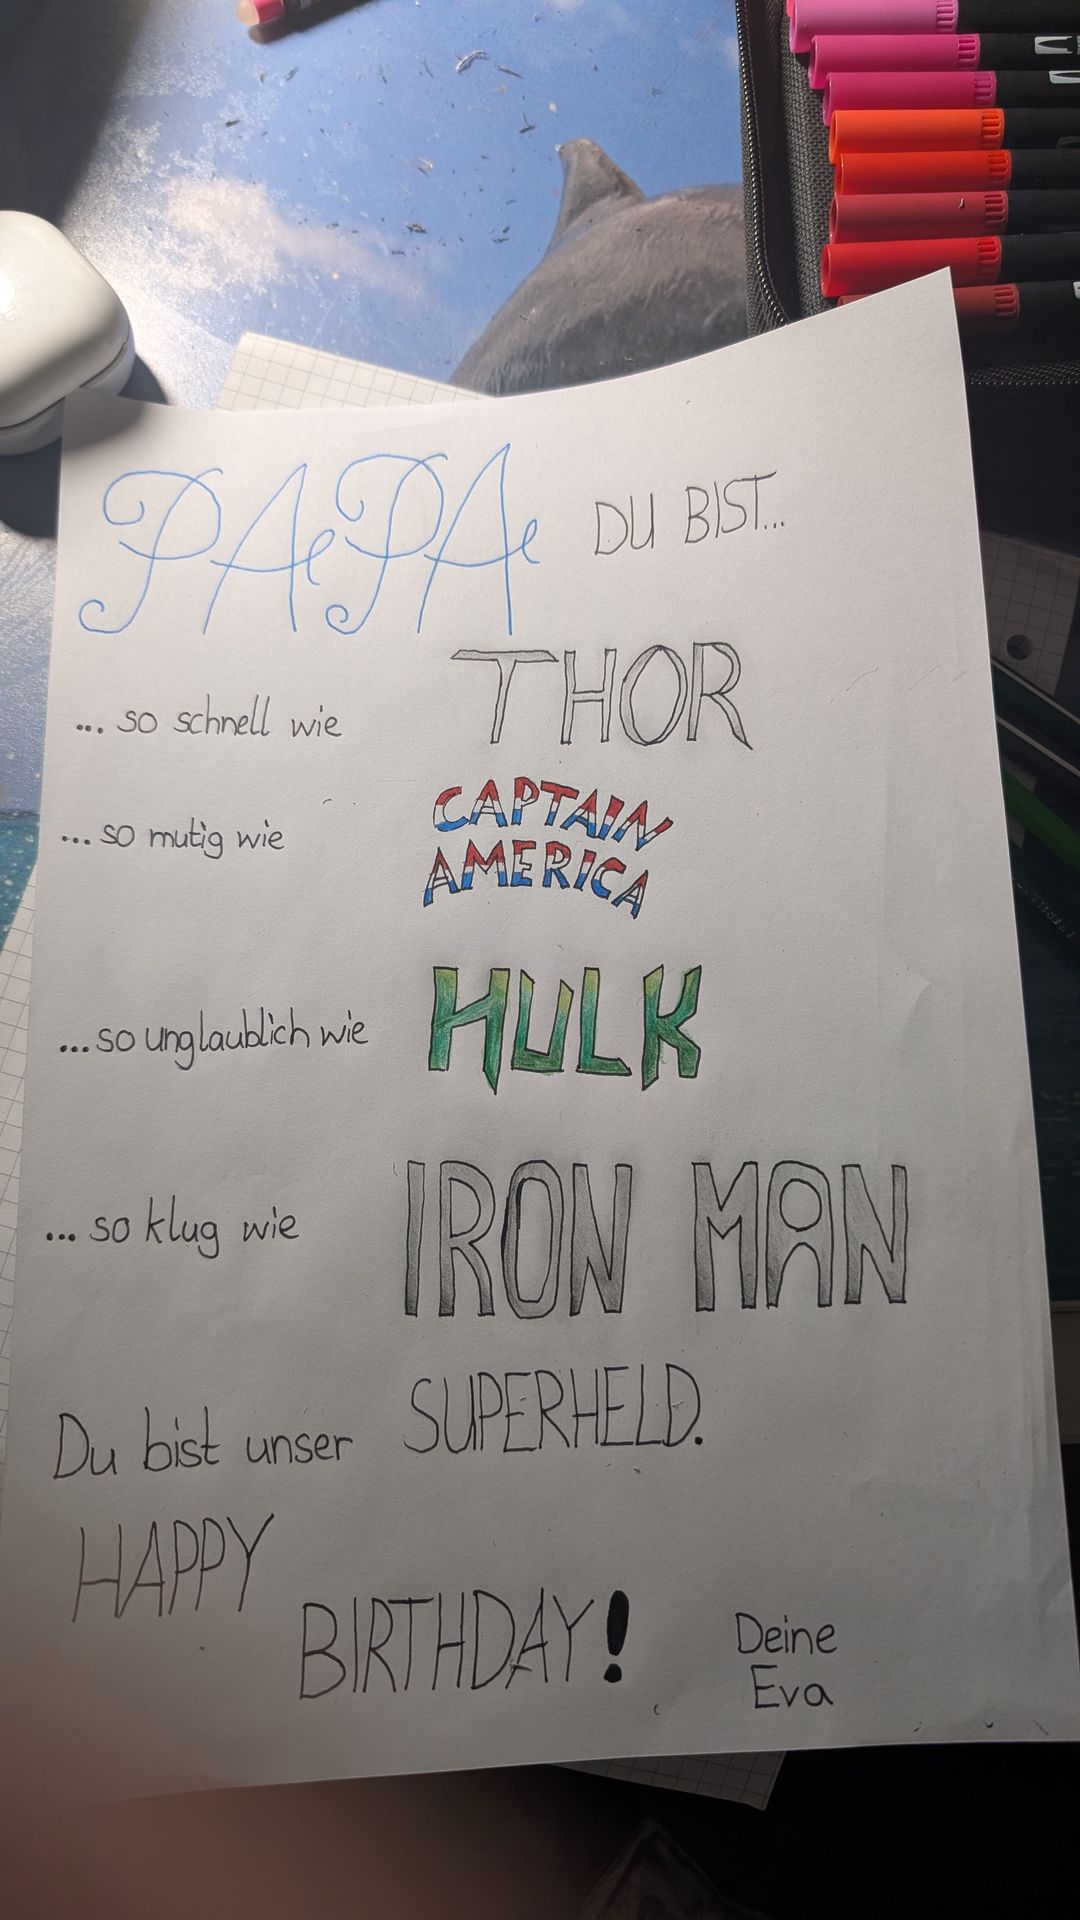 PAPA DU BIST...
... so schnell wie THOR
... so mutig wie CAPTAIN AMERICA
... so unglaublich wie HULK
... so klug wie IRON MAN
Du bist unser SUPERHELD.
HAPPY
BIRTHDAY!
Deine
Eva